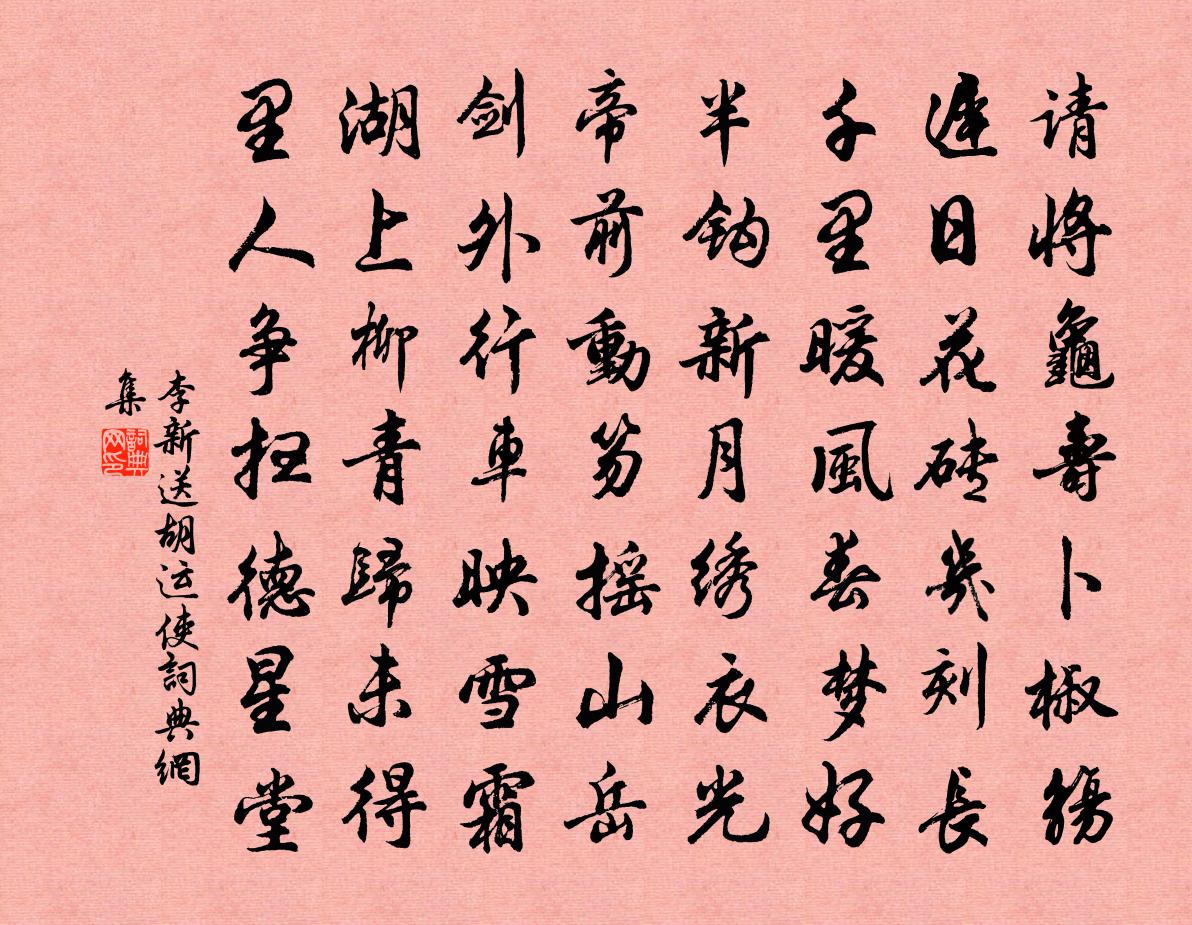 请将龜壽卜椒觴
遲日花砖幾刻長
千里暖風春梦好
半钩新月绣衣光
帝前動笏摇山岳
剑外行車映雪霜
湖上柳青歸未得
里人争扫德星堂
李新送胡运使詞典網
集
詞典网印